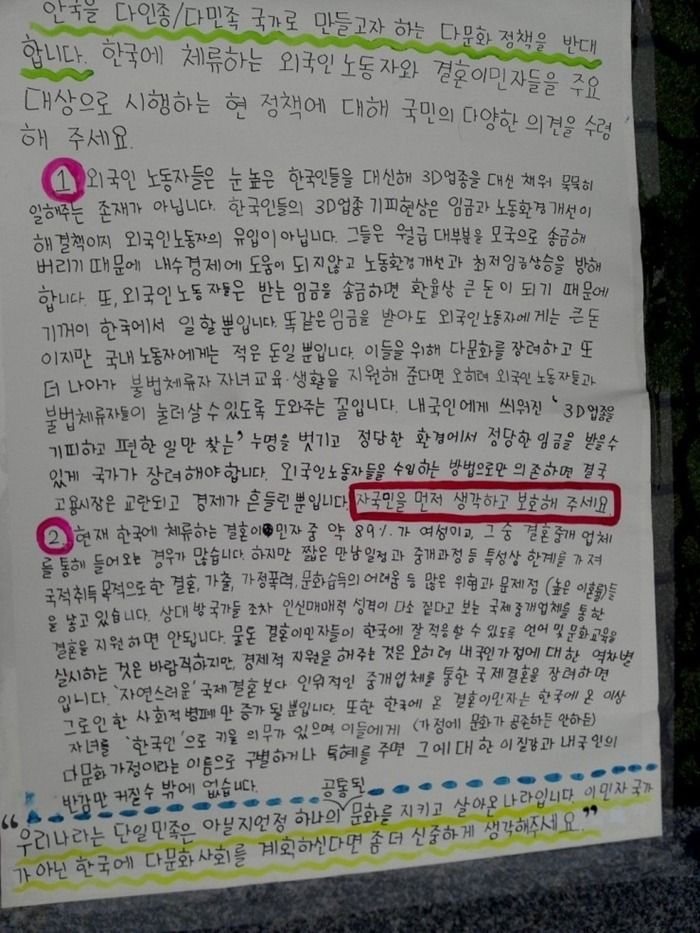 한국을 다인종/다민족 국가로 만들고자 하는 다문화 정책을 반대
합니다. 한국에 체류하는 외국인 노동자와 결혼이민자들을 주요
대상으로 시행하는 현 정책에 대해 국민의 다양한 의견을 수령
해 주세요.
1 외국인 노동자들은 눈높은 한국인들을 대신해 3D업종을 대신 채워 묵묵히
일해주는 존재가 아닙니다. 한국인들의 3D업종 기피현상은 임금과 노동환경개선이
해결책이지 외국인노동자의 유입이 아닙니다. 그들은 월급 대부분을 모국으로 송금해
버리기 때문에 내수경제에 도움이 되지않고 노동환경개선과 최저임금상승을 방해
합니다. 또, 외국인노동자들은 받는 임금을 송금하면 환율상 큰 돈이 되기 때문에
기꺼이 한국에서 일할 뿐입니다. 똑같은 임금을 받아도 외국인노동자에게는 큰돈
이지만 국내노동자에게는 적은 돈일 뿐입니다. 이들을 위해 다문화를 장려하고 또
더 나아가 불법체류자 자녀교육·생활을 지원해 준다면 오히려 외국인 노동자들과
불법체류자들이 눌러살 수 있도록 도와주는 꼴입니다. 내국인에게 씌워진 '3D업종을
기피하고 편한 일만 찾는' 누명을 벗기고 정당한 환경에서 정당한 임금을 받을수
있게 국가가 장려해야합니다. 외국인노동자들을 수입하는 방법으로만 의존하면 결국
고용시장은 교란되고 경제가 흔들린 뿐입니다. 자국민을 먼저 생각하고 보호해 주세요.
2 현재 한국에 체류하는 결혼이민자 중 약 89%가 여성이고, 그 중 결혼중개 업체
를 통해 들어오는 경우가 많습니다. 하지만 짧은 만남일정과 중개과정 등 특성상 한계를 가져
국적취득 목적으로한 결혼, 가출, 가정폭력, 문화습득의 어려움 등 많은 위험과 문제점 (높은 이혼률)들
을 낳고 있습니다. 상대방국가들 조차 인신매매적 성격이 다소 짙다고 보는 국제중개업체를 통한
결혼을 지원하면 안됩니다. 물론 결혼이민자들이 한국에 잘 적응할 수 있도록 언어 및 문화교육을
실시하는 것은 바람직하지만, 경제적 지원을 해주는 것은 오히려 내국인가정에 대한 역차별
입니다. '자연스러운' 국제결혼보다 인위적인 중개업체를 통한 국제결혼을 장려하면
그로인한 사회적병폐만 증가될 뿐입니다. 또한 한국에 온 결혼이민자는 한국에 온 이상
자녀를 '한국인'으로 키울 의무가 있으며 이들에게 (가정에 문화가 공존하든 안하든)
다문화 가정이라는 이름으로 구별하거나 특혜를 주면 그에대한 이질감과 내국인의
반감만 커질수 밖에 없습니다.
공통된
"우리나라는 단일민족은 아닐지언정 하나의 문화를 지키고 살아온나라입니다. 이민자 국가
가 아닌 한국에 다문화사회를 계획하신다면 좀 더 신중하게 생각해주세요."